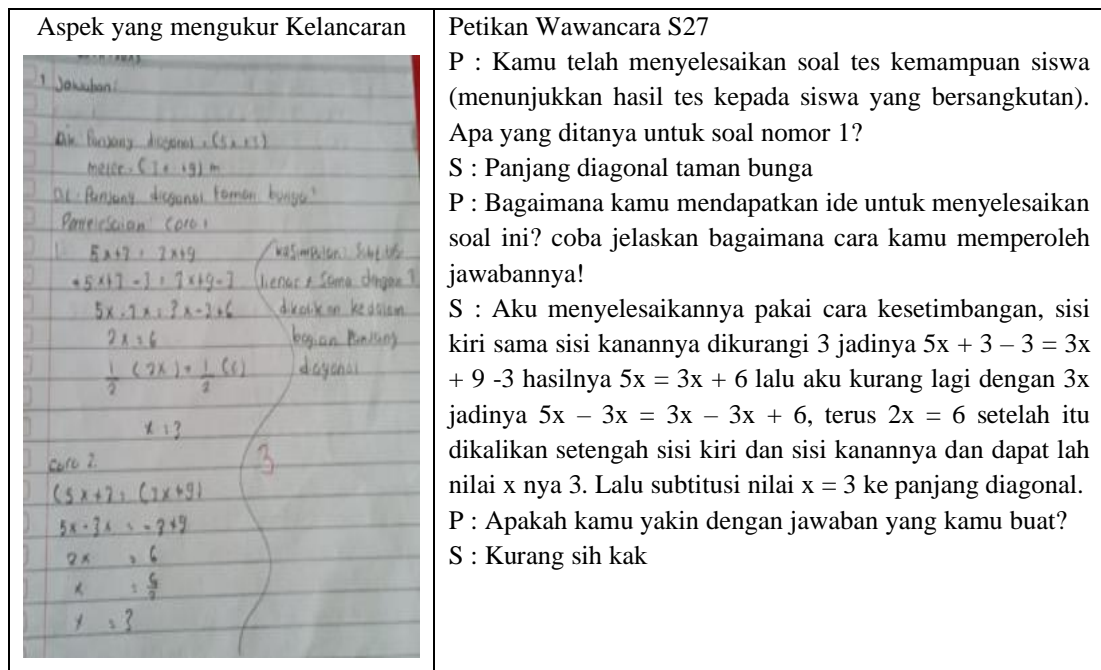 Aspek yang mengukur Kelancaran
1 Jawaban:
Dik: Panjang diagonal = (5x+3)
(3x +9) m
Dit: Panjang diagonal taman bunga?
Penyelesaian: Cara 1
1. 5x+3 = 3x+9
5x+3 - 3 = 3x+9-3
5x-3x = 3x-3x+6
2x = 6
1/2 (2x) = 1/2 (6)
x = 3
kesimpulan:
sama dengan 3
dikalikan kedalam
bagian Panjang
diagonal
3
cara 2
(5x+3 = (3x+9)
5x-3x = -3+9
2x = 6
x = 6/2
x = 3
Petikan Wawancara S27
P : Kamu telah menyelesaikan soal tes kemampuan siswa
(menunjukkan hasil tes kepada siswa yang bersangkutan).
Apa yang ditanya untuk soal nomor 1?
S : Panjang diagonal taman bunga
P : Bagaimana kamu mendapatkan ide untuk menyelesaikan
soal ini? coba jelaskan bagaimana cara kamu memperoleh
jawabannya!
S : Aku menyelesaikannya pakai cara kesetimbangan, sisi
kiri sama sisi kanannya dikurangi 3 jadinya 5x + 3 – 3 = 3x
+ 9 -3 hasilnya 5x = 3x + 6 lalu aku kurang lagi dengan 3x
jadinya 5x – 3x = 3x – 3x + 6, terus 2x = 6 setelah itu
dikalikan setengah sisi kiri dan sisi kanannya dan dapat lah
nilai x nya 3. Lalu subtitusi nilai x = 3 ke panjang diagonal.
P : Apakah kamu yakin dengan jawaban yang kamu buat?
S : Kurang sih kak